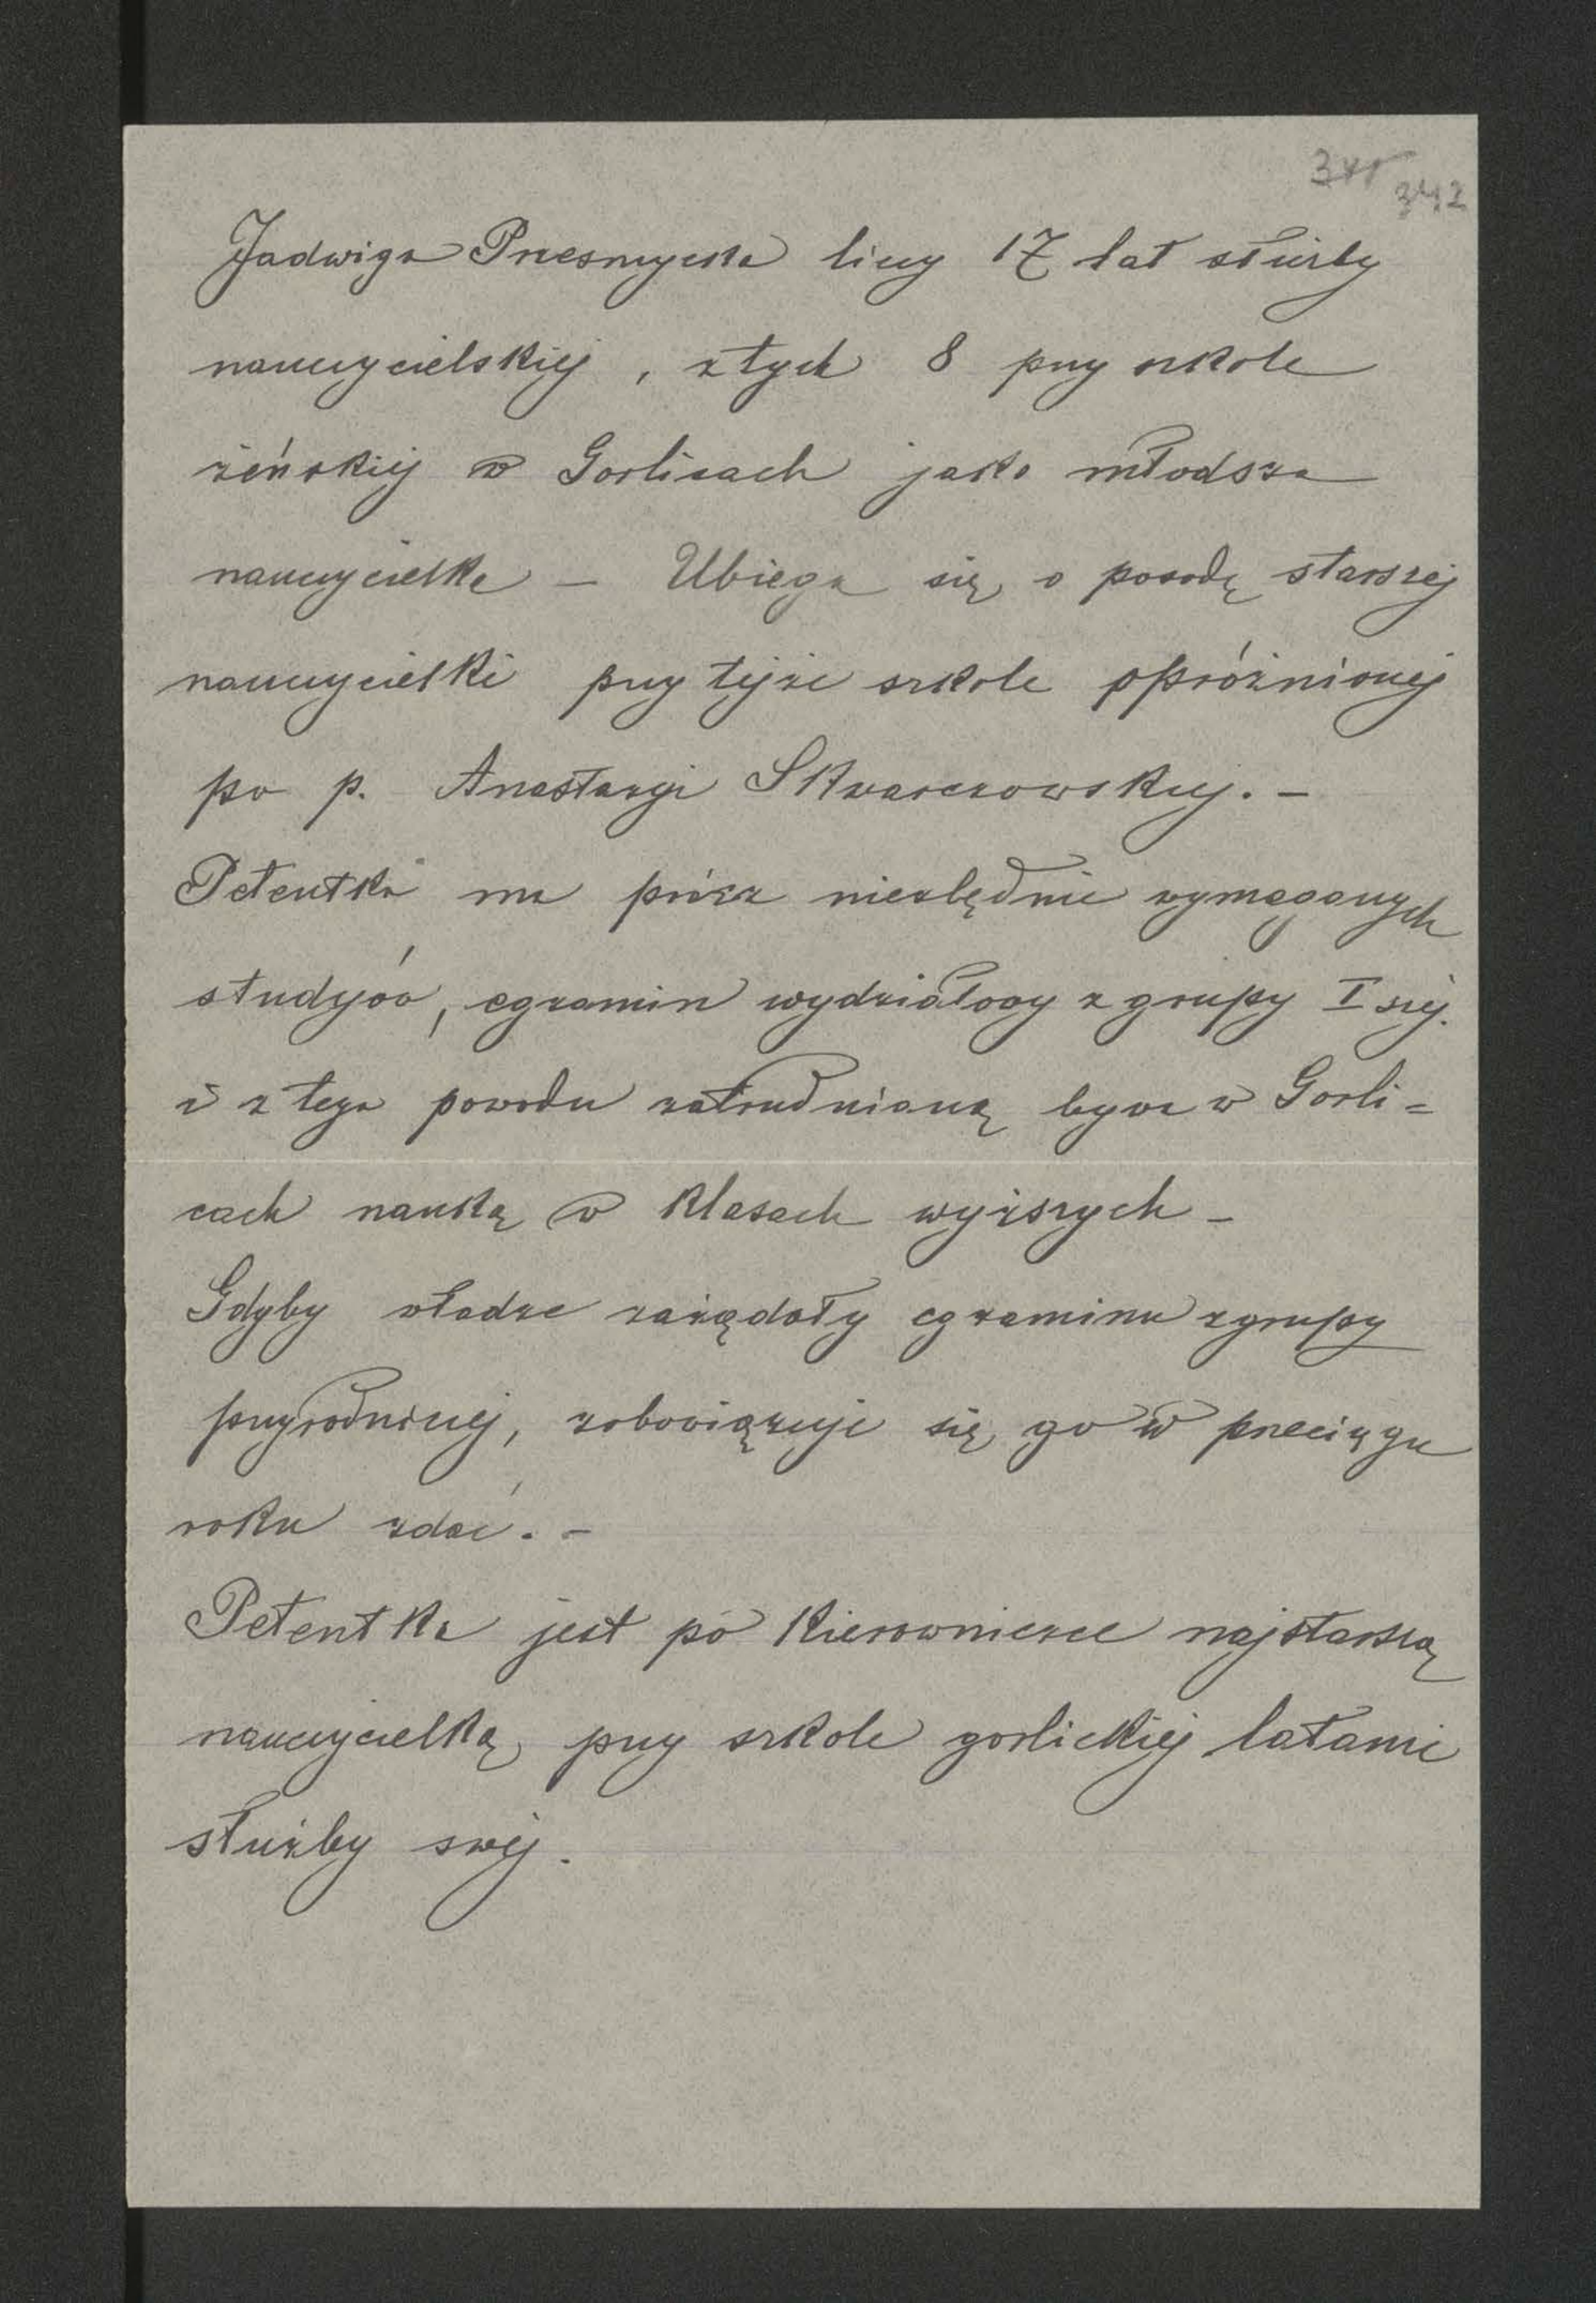 342
Jadwiga Przesmycka liczy 17 lat służby
nauczycielskiej, z tych 8 przy szkole
żeńskiej w Gorlicach jako młodsza
nauczycielka – Ubiega się o posadę starszej
nauczycielki przy tejże szkole opróżnionej
po p. Anastazyi Skwarczowskiej. –
Petentka ma prócz niezbędnie wymaganych
studyów, egzamin wydziałowy z grupy I szej.
i z tego powodu zatrudnianą bywa w Gorli=
cach nauką w klasach wyższych –
Gdyby władze zażądały egzaminu z grupy
przyrodniczej, zobowiązuje się go w przeciągu
roku zdać. –
Petentka jest po kierowniczce najstarszą
nauczycielką przy szkole gorlickiej latami
służby swej.